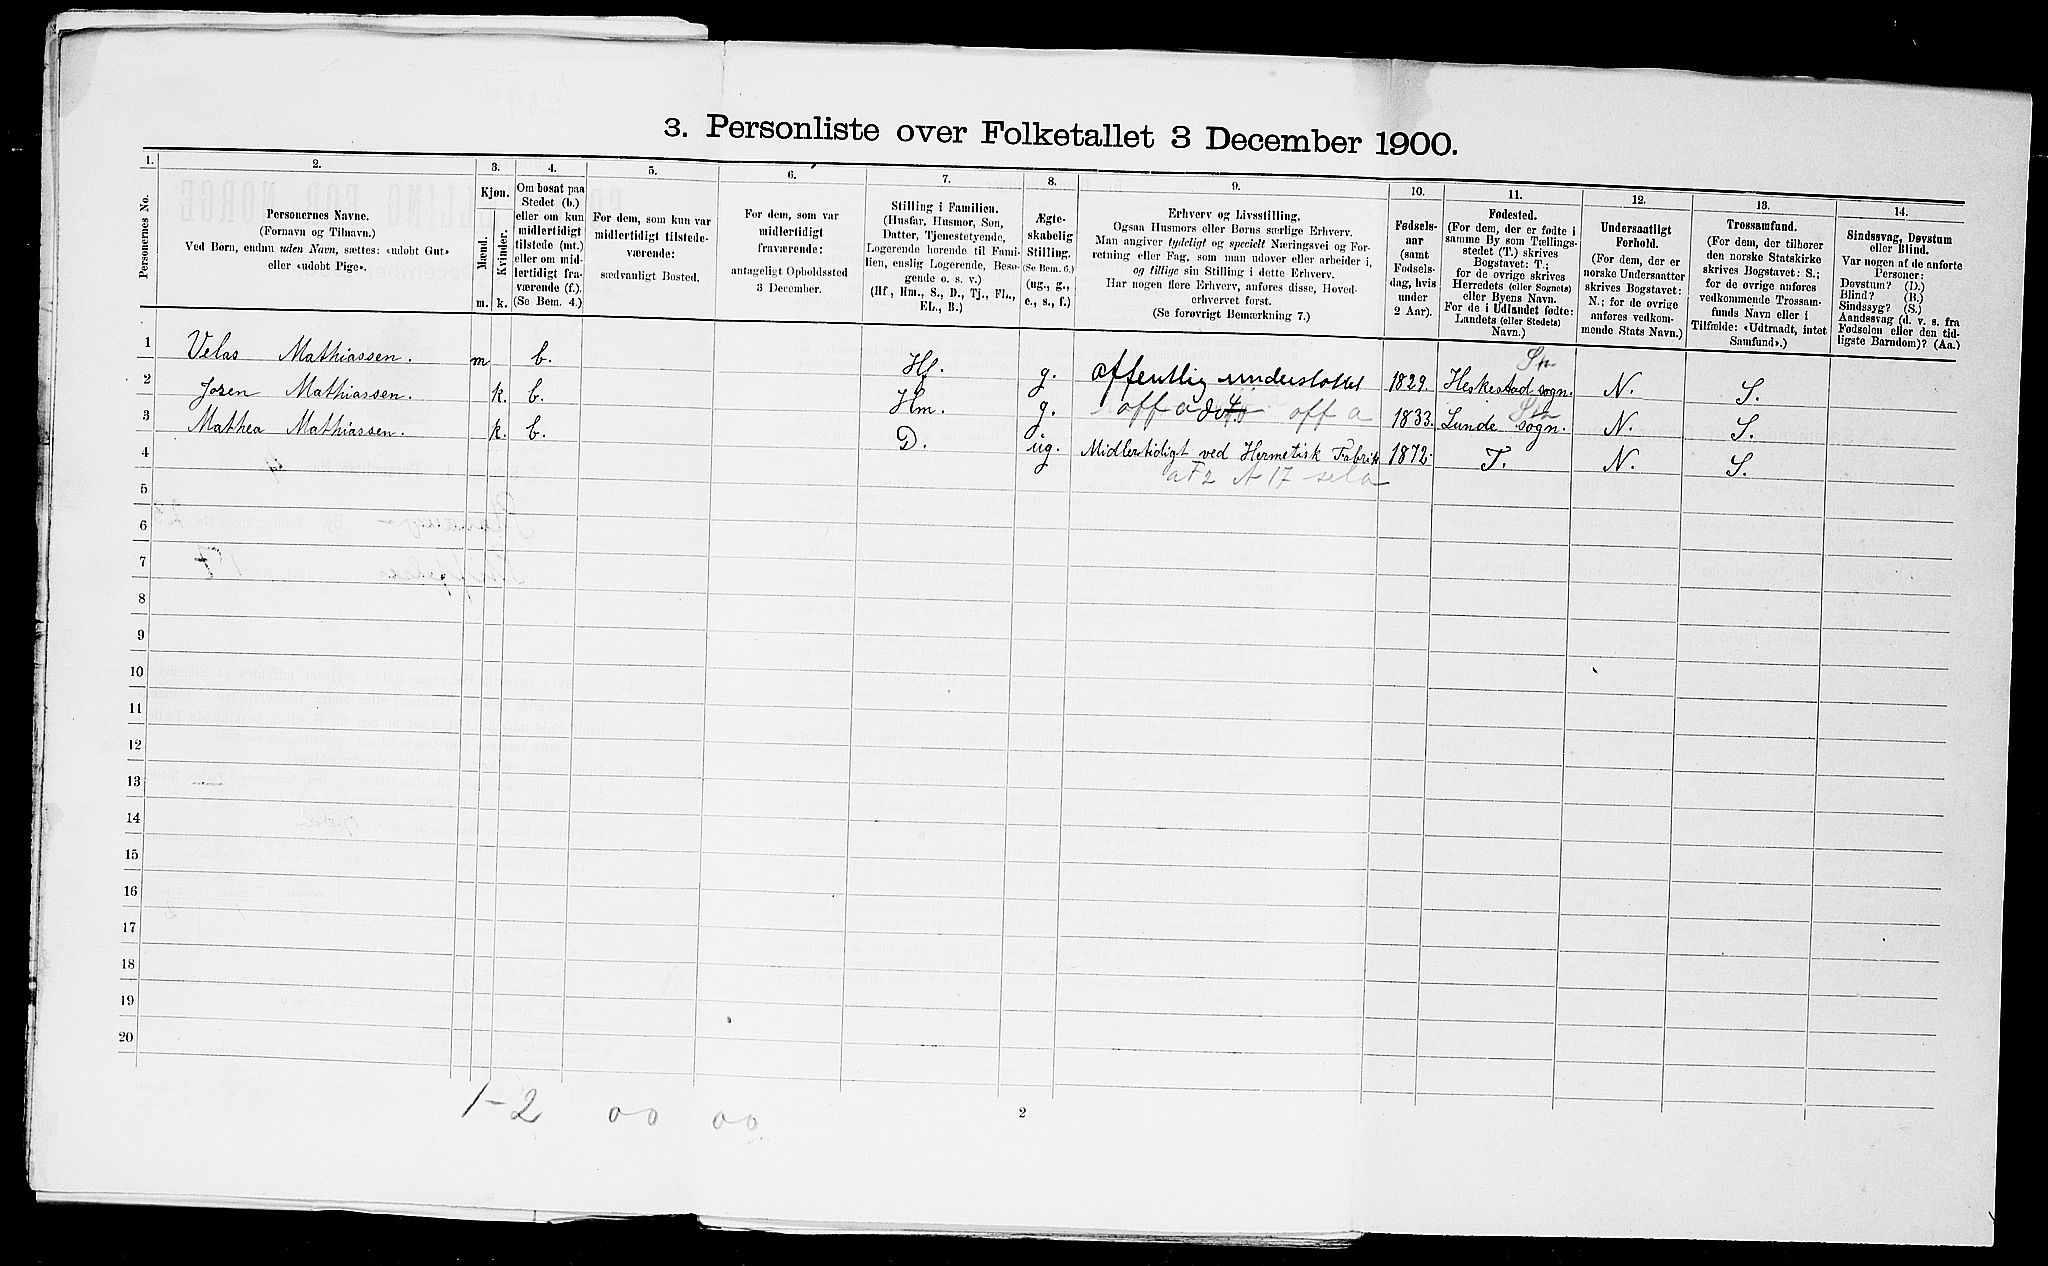 3. Personliste over Folketallet 3 December 1900.
1. 2. 3. 4. 5. 6. 7. 8. 9. 10. 11. 12. 13. 14.
Personernes No.
Personernes Navne.
(Fornavn og Tilnavn.)
Ved Børn, endnu uden Navn, sættes: «udøbt Gut»
eller «udøbt Pige».
Kjøn.
Mænd.
Kvinder.
m. k.
Om bosat paa
Stedet (b.)
eller om kun
midlertidigt
tilstede (mt.)
eller om mid-
lertidigt fra-
værende (f.).
(Se Bem. 4.)
For dem, som kun var
midlertidigt tilstede-
værende:
sædvanligt Bosted.
For dem, som var
midlertidigt
fraværende:
antageligt Opholdssted
3 December.
Stilling i Familien.
(Husfar, Husmor, Søn,
Datter, Tjenestetyende,
Logerende hørende til Fami-
lien, enslig Logerende, Besø-
gende o. s. v.)
(Hf., Hm., S., D., Tj., FL.,
EL., B.)
Ægte-
skabelig
Stilling.
(Se Bem. 6.)
(ug., g.,
e., s., f.)
Erhverv og Livsstilling.
Ogsaa Husmors eller Børns særlige Erhverv.
Man angiver tydeligt og specielt Næringsvei og For-
retning eller Fag, som man udøver eller arbeider i,
og tillige sin Stilling i dette Erhverv.
Har nogen flere Erhverv, anføres disse, Hoved-
erhvervet først.
(Se forøvrigt Bemærkning 7.)
Fødsels-
aar
(samt
Fødsels-
dag, hvis
under
2 Aar).
Fødested.
(For dem, der er fødte i
samme By som Tællings-
stedet (T.) skrives
Bogstavet: T.;
for de øvrige skrives
Herredets (eller Sognets)
eller Byens Navn.
For de i Udlandet fødte:
Landets (eller Stedets)
Navn.)
Undersaatligt
Forhold.
(For dem, der er
norske Undersaatter
skrives Bogstavet:
N.; for de øvrige
anføres vedkom-
mende Stats Navn.)
Trossamfund.
(For dem, der tilhører
den norske Statskirke
skrives Bogstavet: S.;
for de øvrige anføres
vedkommende Trossam-
funds Navn eller i
Tilfælde: «Udtraadt, intet
Samfund».)
Sindssvag, Døvstum
eller Blind.
Var nogen af de anførte
Personer:
Døvstum? (D.)
Blind? (B.)
Sindssyg? (S.)
Aandssvag (d. v. s. fra
Fødselen eller den tid-
ligste Barndom)? (Aa.)
1 Velas Mathiassen. m b. Hf. g. offentlig understøttet 1829 Heskestad sogn. N. S.
2 Josen Mathiassen. k. b. Hm. g. off a 1833. Lunde sogn. N. S.
3 Mathea Mathiassen. k. b. D. ug. Midlertidigt ved Hermetisk Fabrik 1872. T. N. S.
4
5
6
7
8
9
10
11
12
13
14
15
16
17
18
19
20
1-2 00 00
2